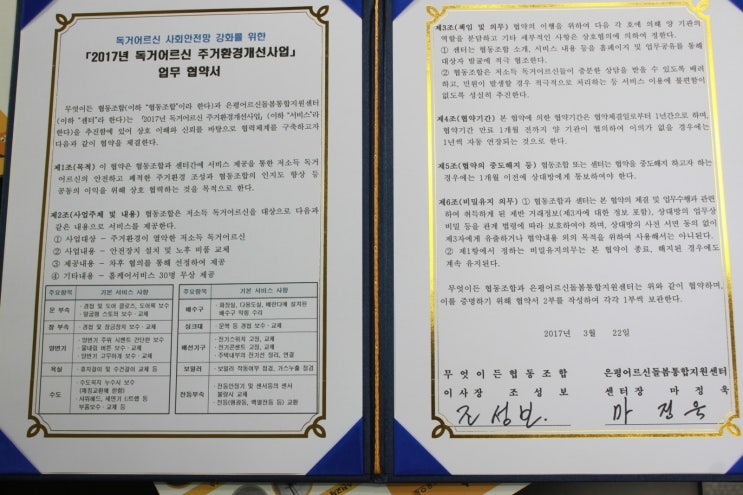 독거어르신 사회안전망 강화를 위한
「2017년 독거어르신 주거환경개선사업」
업무 협약서
무엇이든 협동조합(이하 "협동조합"이라 한다)과 은평어르신돌봄통합지원센터
(이하 "센터"라 한다)는 「2017년 독거어르신 주거환경개선사업」 (이하 "서비스"라
한다)을 추진함에 있어 상호 이해와 신뢰를 바탕으로 협력체제를 구축하고자
다음과 같이 협약을 체결한다.
제1조(목적) 이 협약은 협동조합과 센터간에 서비스 제공을 통한 저소득 독거
어르신의 안전하고 쾌적한 주거환경 조성과 협동조합의 인지도 향상 등
공동의 이익을 위해 상호 협력하는 것을 목적으로 한다.
제2조(사업주체 및 내용) 협동조합은 저소득 독거어르신을 대상으로 다음과
같은 내용으로 서비스를 제공한다.
① 사업대상 - 주거환경이 열악한 저소득 독거어르신
② 사업내용 - 안전장치 설치 및 노후 비품 교체
③ 제공내용 - 차후 협의를 통해 선정하여 제공
④ 기타내용 - 홈케어서비스 30명 무상 제공
주요항목 기본 서비스 사항 주요항목 기본 서비스 사항
문 부속 · 경첩 및 도어 클로즈, 도어록 보수
· 말굽형 스토퍼 보수 · 교체
배수구 · 화장실, 다용도실, 베란다에 설치된
배수구 막힘 수리
창 부속 · 경첩 및 잠금장치 보수 · 교체
싱크대 · 문짝 등 경첩 보수 · 교체
양변기 · 양변기 주위 시멘트 간단한 보수
· 물내림 버튼 보수 · 교체
· 양변기 고무패킹 보수 · 교체
배선기구 · 전기스위치 고정, 교체
· 전기콘센트 고정, 교체
· 주택내부의 전기선 정리, 연결
욕실 · 휴지걸이 및 수건걸이 교체 등
보일러 · 보일러 작동여부 점검, 가스누출 점검
수도 · 수도꼭지 누수시 보수
(패킹교환에 한함)
· 샤워헤드, 세면기 U트랩 등
부품보수 · 교체 등
전등부속 · 전등안정기 및 센서등의 센서
불량시 교체
· 전등(형광등, 백열전등 등) 교환
제3조(책임 및 의무) 협약의 이행을 위하여 다음 각 호에 의해 양 기관의
역할을 분담하고 기타 세부적인 사항은 상호협의에 의하여 정한다.
① 센터는 협동조합 소개, 서비스 내용 등을 홈페이지 및 업무공유를 통해
대상자 발굴에 적극 협조한다.
② 협동조합은 저소득 독거어르신들이 충분한 상담을 받을 수 있도록 배려
하고, 민원이 발생할 경우 적극적으로 처리하는 등 서비스 이용에 불편함이
없도록 성심히 추진한다.
제4조(협약기간) 본 협약에 의한 협약기간은 협약체결일로부터 1년간으로 하며,
협약기간 만료 1개월 전까지 양 기관이 협의하여 이의가 없을 경우에는
1년씩 자동 연장되는 것으로 한다.
제5조(협약의 중도해지 등) 협동조합 또는 센터는 협약을 중도해지 하고자 하는
경우에는 1개월 이전에 상대방에게 통보하여야 한다.
제6조(비밀유지 의무) ① 협동조합과 센터는 본 협약의 체결 및 업무수행과 관련
하여 취득하게 된 제반 거래정보(제3자에 대한 정보 포함), 상대방의 업무상
비밀 등을 관계 법령에 따라 보호하여야 하며, 상대방의 사전 서면 동의 없이
제3자에게 유출하거나 협약내용 외의 목적을 위하여 사용해서는 아니된다.
② 제1항에서 정하는 비밀유지의무는 본 협약이 종료, 해지된 경우에도
계속 유지된다.
무엇이든 협동조합과 은평어르신돌봄통합지원센터는 위와 같이 협약하며,
이를 증명하기 위해 협약서 2부를 작성하여 각각 1부씩 보관한다.
2017년 3월 22일
무엇이든협동조합
이사장 조성보
조성보
은평어르신돌봄통합지원센터
센터장 마정욱
마정욱